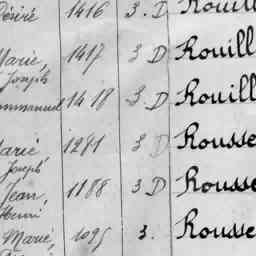 Désiré 1416 3. D Rouill
Marie, 1417 3 D Rouill
Joseph
Emmanuel 1418 3. D Rouill
Marie 1291 3 D Rousse
Joseph
Jean, 1188 3 D Rousse
Henri
Marie, 1095 3. Rousse